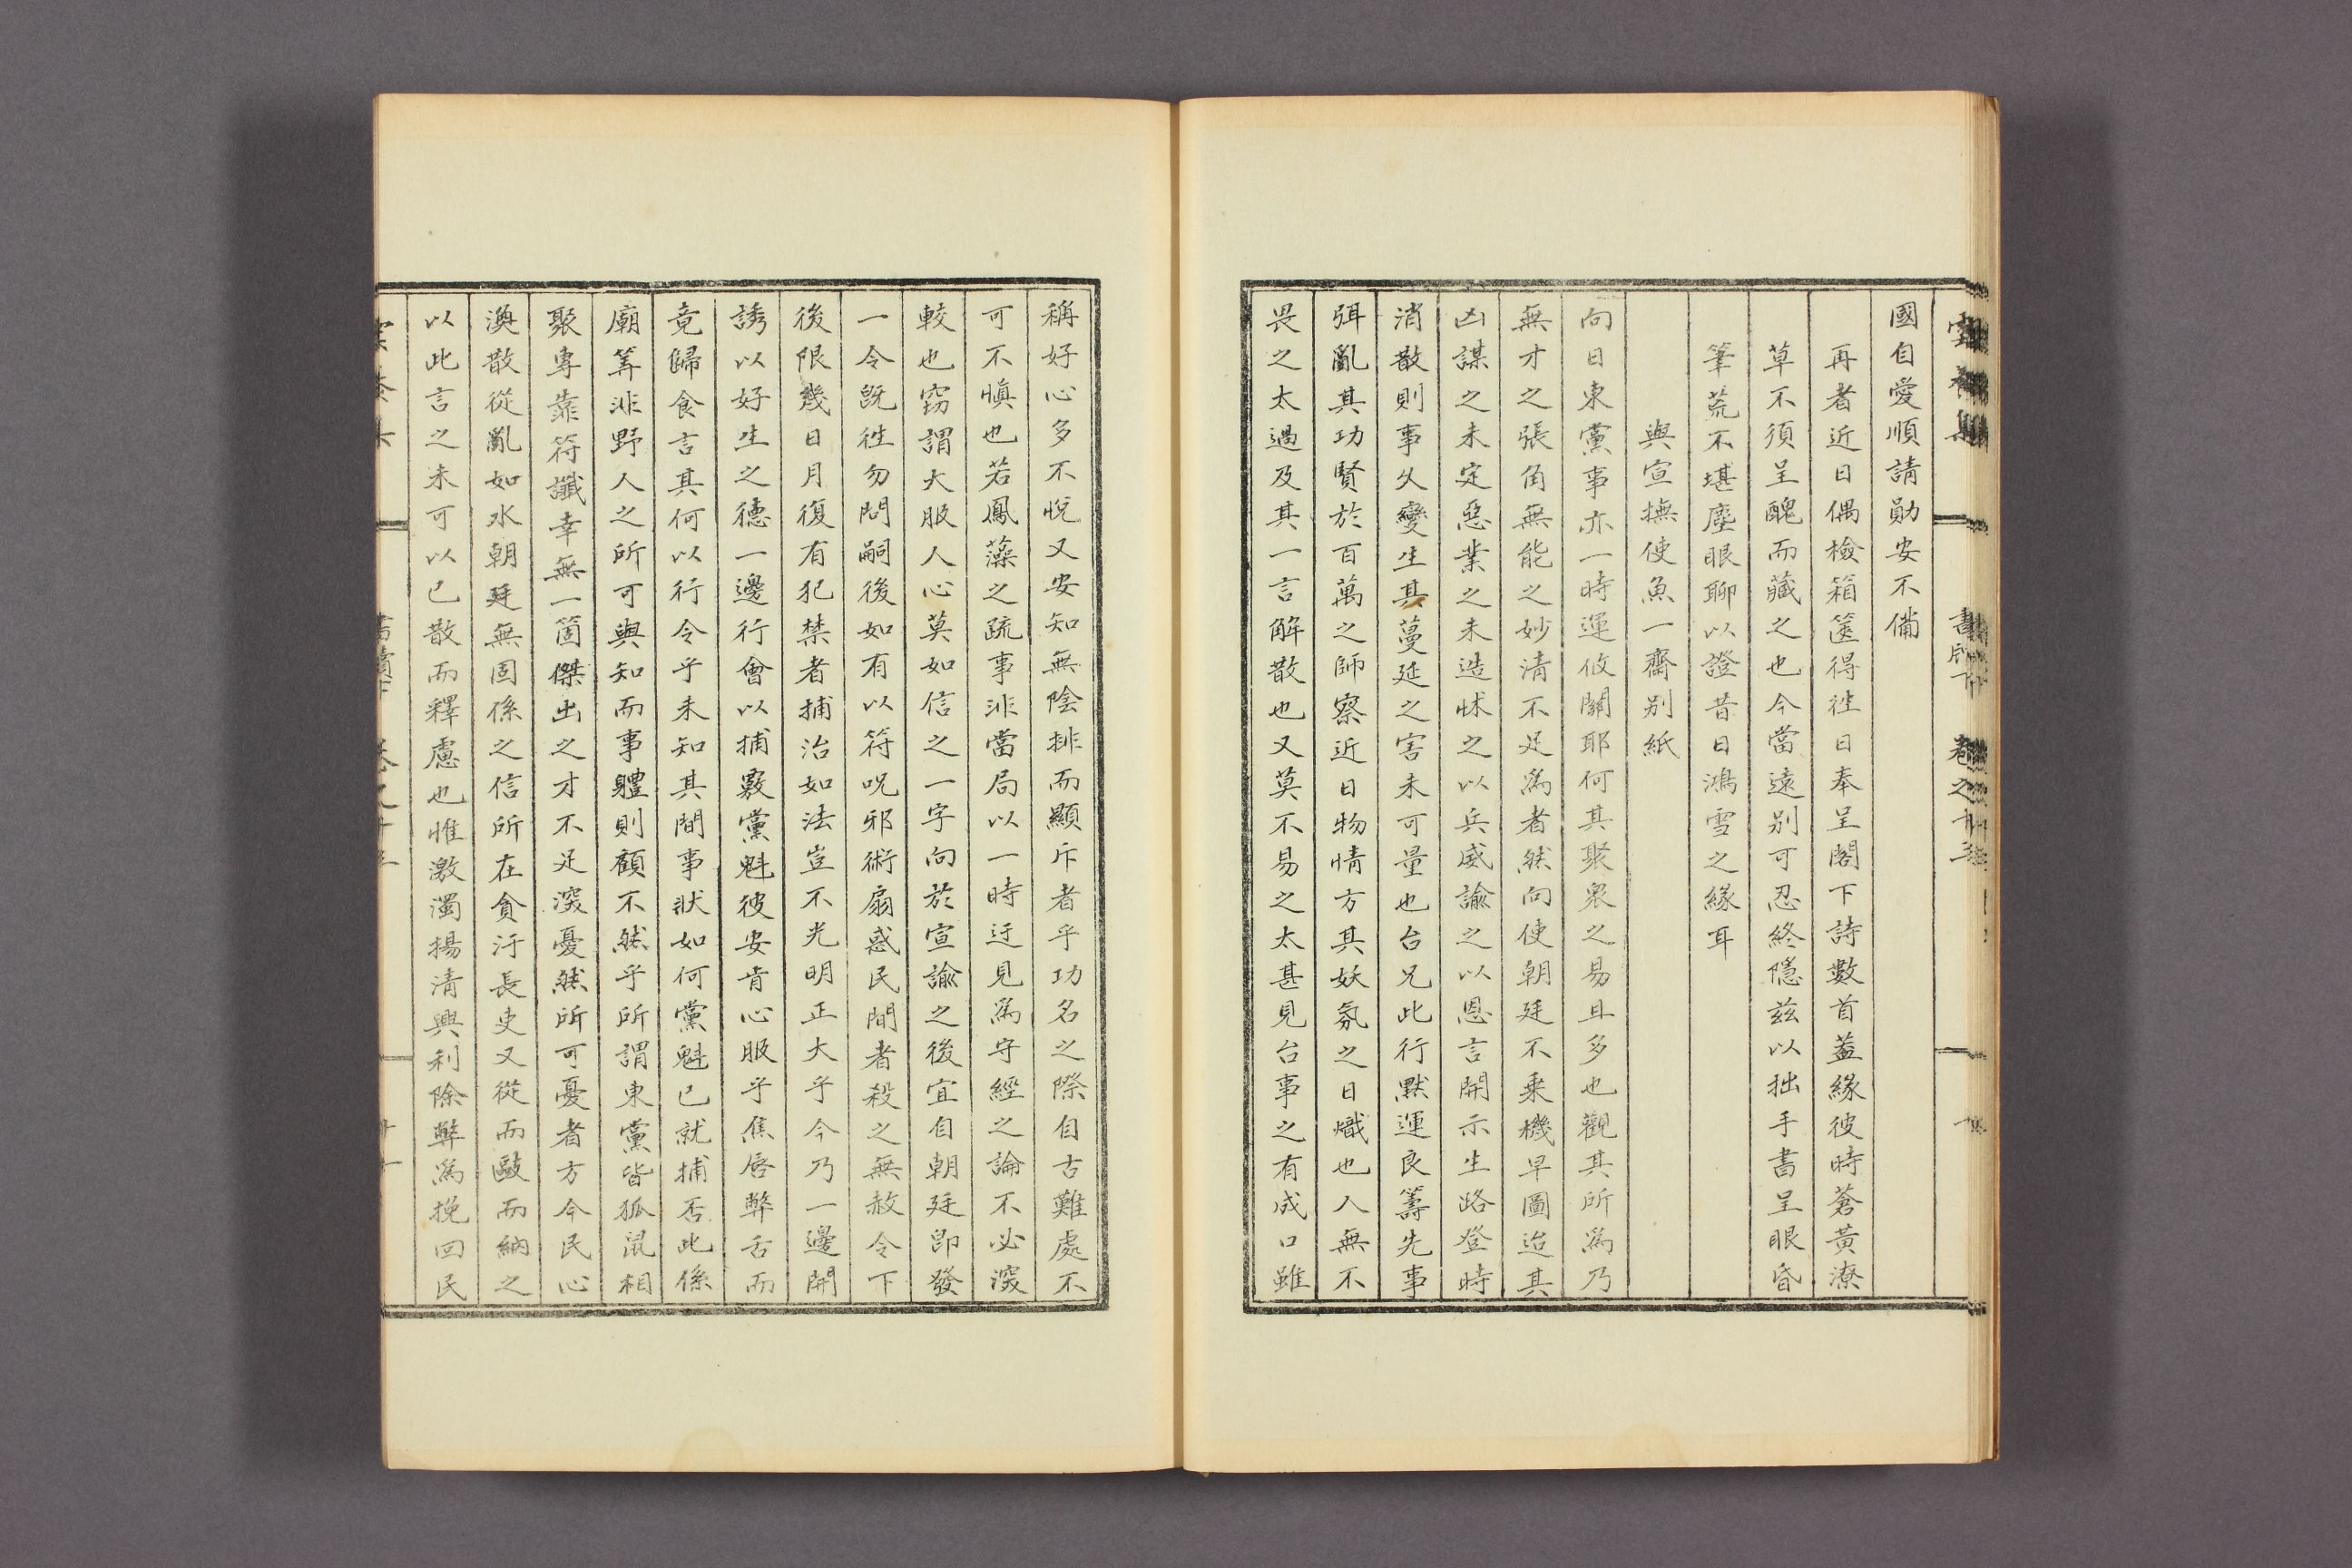 國自愛順請勛安不備
再者近日偶檢箱篋得徃日奉呈閣下詩數首蓋緣彼時蒼黃潦
草不須呈醜而藏之也今當遠别可忍終隱兹以拙手書呈眼昏
筆荒不堪塵眼聊以證昔日鴻雪之緣耳
與宣撫使魚一齋别紙
向日東黨事亦一時運攸關耶何其聚衆之易且多也觀其所爲乃
無才之張角無能之妙清不足爲者然向使朝廷不乘機早圖迨其
凶謀之未定惡業之未造怵之以兵威諭之以恩言開示生路登時
消散則事久變生其蔓延之害未可量也台兄此行默運良籌先事
弭亂其功賢於百萬之師察近日物情方其妖氛之日熾也人無不
畏之太過及其一言解散也又莫不易之太甚見台事之有成口雖
稱好心多不悅又安知無陰排而顯斥者乎功名之際自古難處不
可不愼也若鳳藻之疏事非當局以一時迂見爲守經之論不必深
較也窃謂大服人心莫如信之一字向於宣諭之後宜自朝廷卽發
一令旣徃勿問嗣後如有以符呪邪術扇惑民間者殺之無赦令下
後限幾日月復有犯禁者捕治如法豈不光明正大乎今乃一邊開
誘以好生之德一邊行會以捕覈黨魁彼安肯心服乎焦唇弊舌而
竟歸食言其何以行令乎未知其間事狀如何黨魁已就捕否此係
廟筭非野人之所可與知而事軆則顧不然乎所謂東黨皆狐鼠相
聚專靠符讖幸無一箇傑出之才不足深憂然所可憂者方今民心
渙散從亂如水朝廷無固係之信所在貪汙長吏又從而敺而納之
以此言之未可以已散而釋慮也惟激濁揚清興利除弊爲挽回民